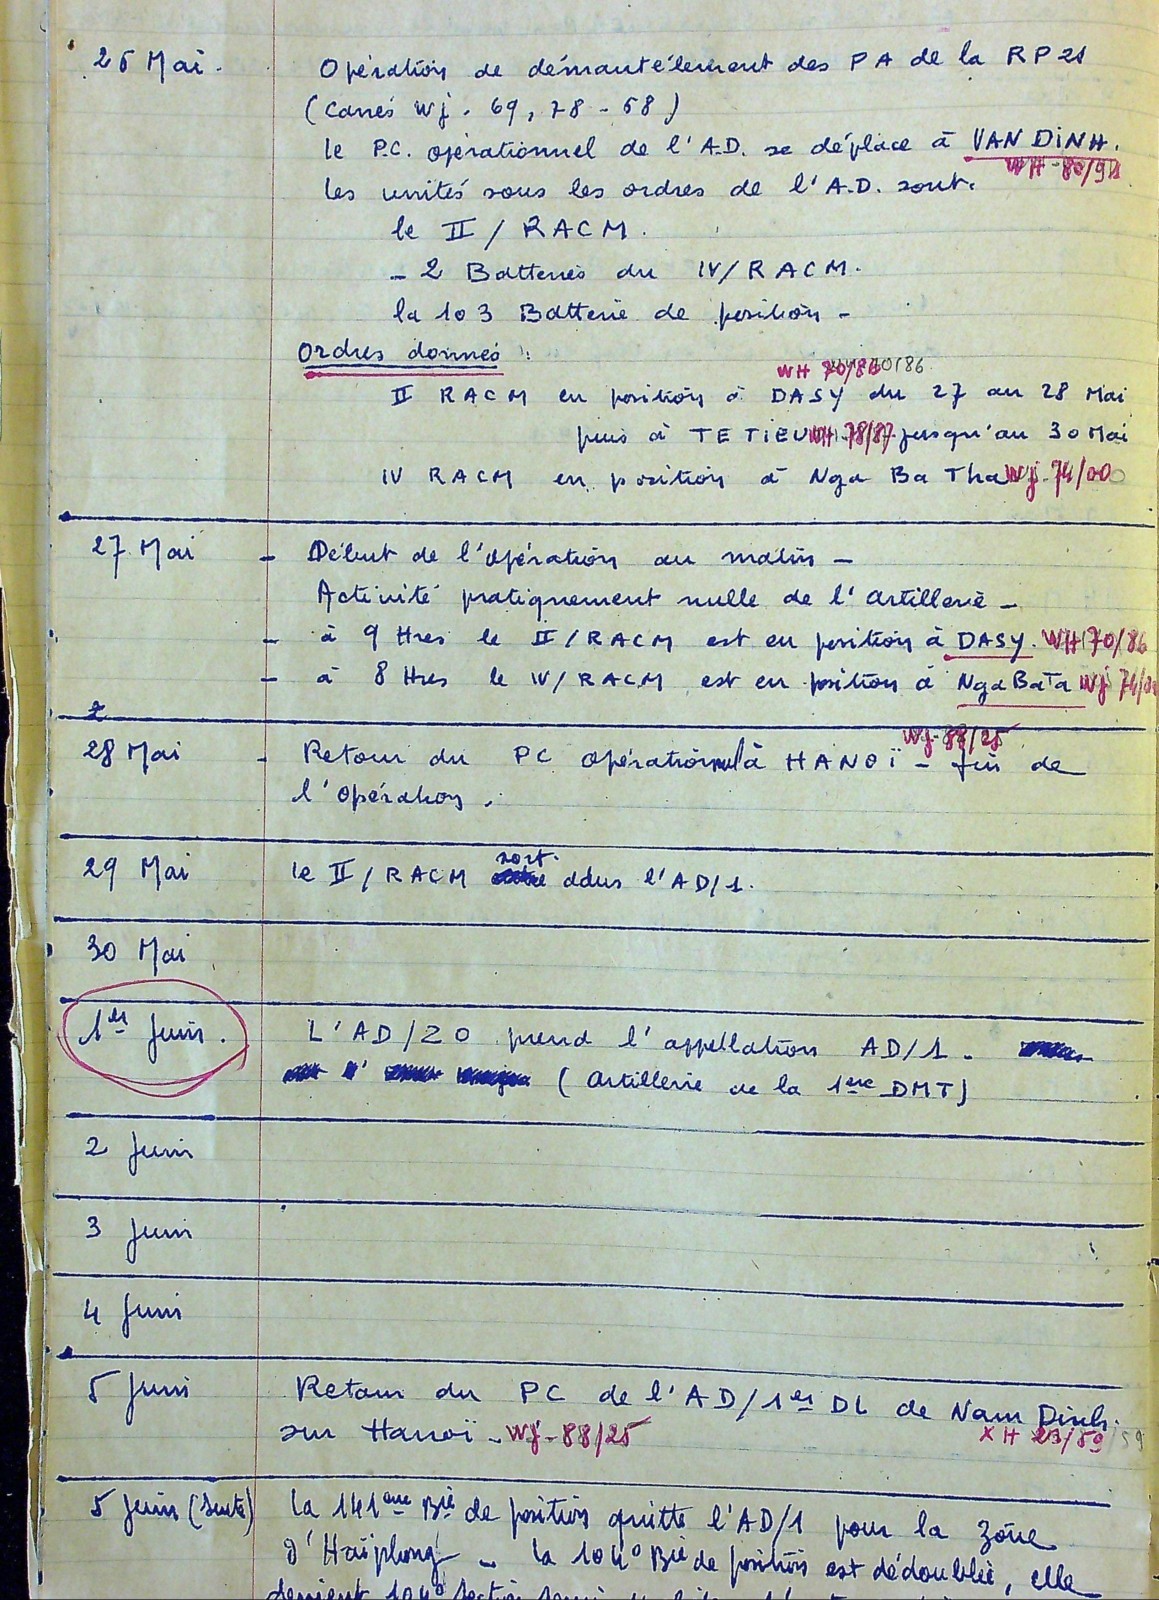 26 Mai. Opération de démantèlement des PA de la RP 21
(Carrés Wj. 69, 78 - 68)
le P.C. opérationnel de l'A.D. se déplace à VAN DINH.
WH - 82/91
les unités sous les ordres de l'A.D. sont.
le II / RACM.
- 2 Batteries du IV/RACM.
la 103 Batterie de position -
Ordres donnés :
WH 70/86
II RACM en position à DASY du 27 au 28 Mai
puis à TETIEU WH 78/87 jusqu'au 30 Mai
IV RACM en position à Nga Ba Tha Wj. 74/00
27 Mai - Début de l'opération au matin -
Activité pratiquement nulle de l'artillerie -
- à 9 Hres le II/RACM est en position à DASY. WH 70/86
- à 8 Hres le IV/RACM est en position à Nga Ba Ta Wj 74/00
Wj-88/25
28 Mai - Retour du PC opérationnel à HANOÏ - fin de
l'opération.
sort.
29 Mai le II/RACM ddus l'AD/1.
30 Mai
1er Juin. L'AD/20 prend l'appellation AD/1.
(Artillerie de la 1ère DMT)
2 Juin
3 Juin
4 Juin
5 Juin Retour du PC de l'AD/1er DL de Nam Dinh.
sur Hanoï - Wj-88/25 XH 23/59
5 Juin (suite) la 141ème Bie de position quitte l'AD/1 pour la zône
d'Haïphong - la 104° Bie de position est dédoublée, elle
devient 104° Section